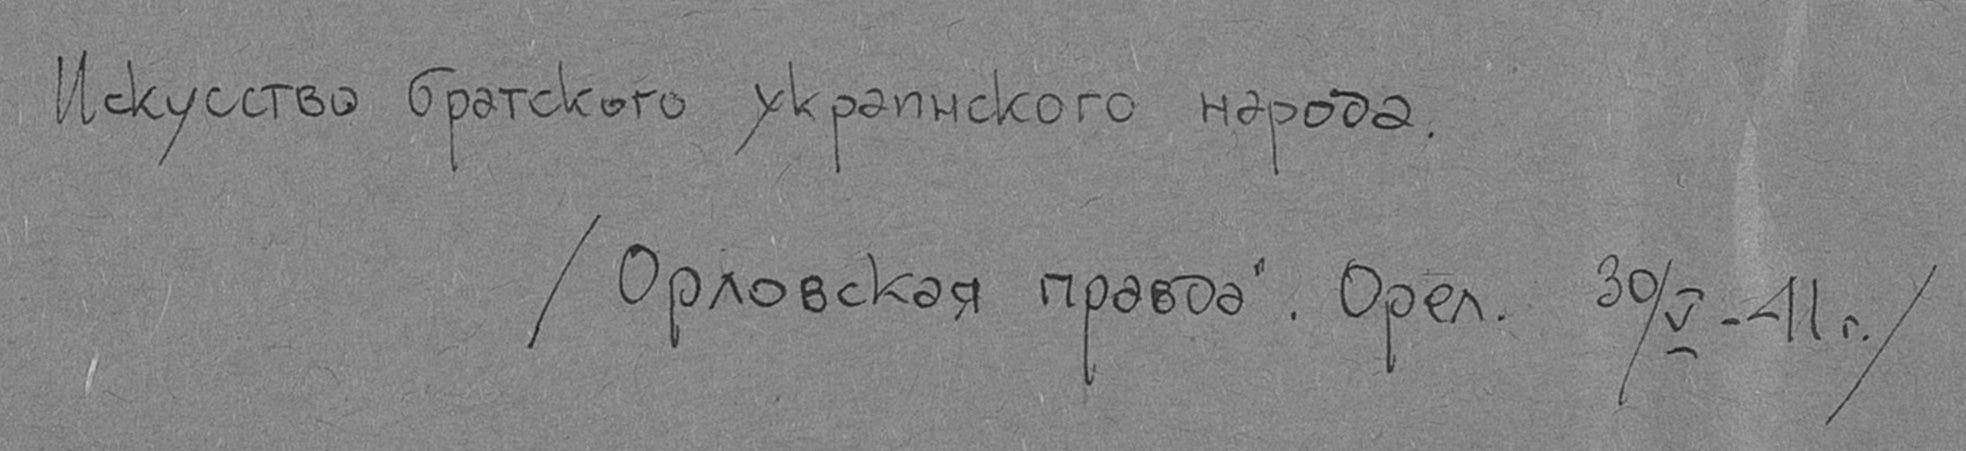 Искусство братского украинского народа.
/Орловская правда". Орел. 30/V-41 г./